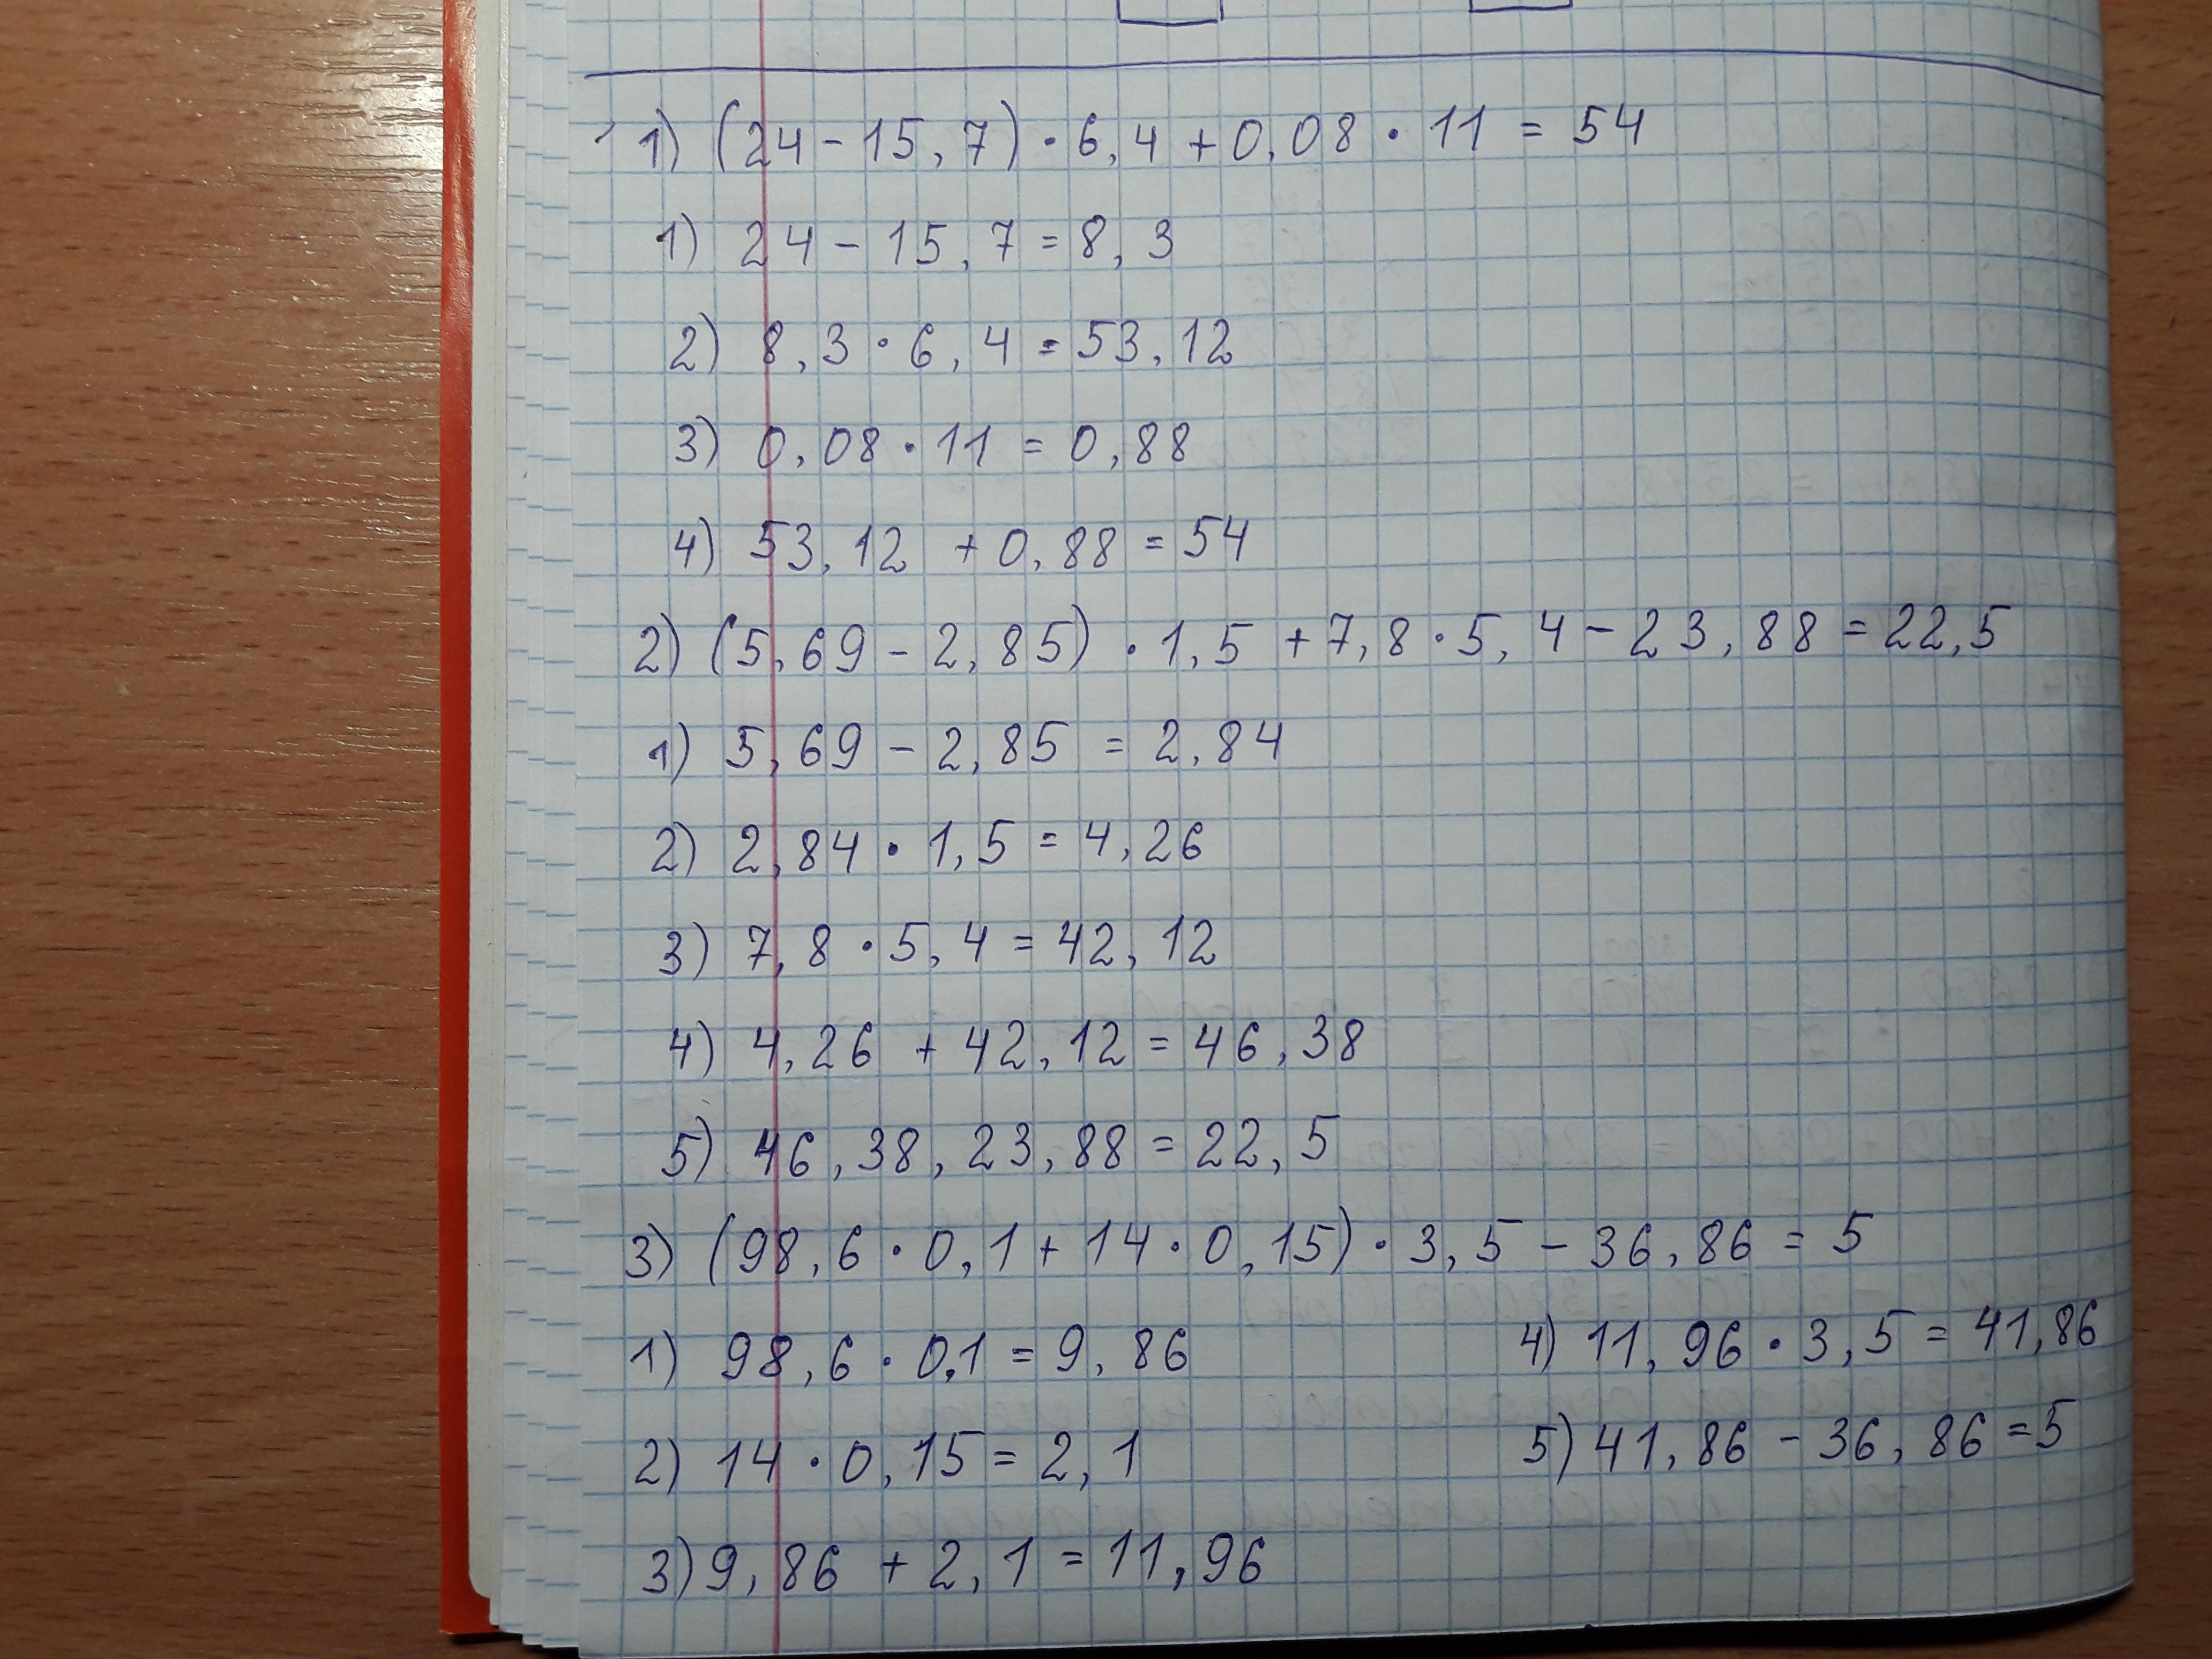 1) (24 - 15,7) · 6,4 + 0,08 · 11 = 54
1) 24 - 15,7 = 8,3
2) 8,3 · 6,4 = 53,12
3) 0,08 · 11 = 0,88
4) 53,12 + 0,88 = 54
2) (5,69 - 2,85) · 1,5 + 7,8 · 5,4 - 23,88 = 22,5
1) 5,69 - 2,85 = 2,84
2) 2,84 · 1,5 = 4,26
3) 7,8 · 5,4 = 42,12
4) 4,26 + 42,12 = 46,38
5) 46,38,23,88 = 22,5
3) (98,6 · 0,1 + 14 · 0,15) · 3,5 - 36,86 = 5
1) 98,6 · 0,1 = 9,86
2) 14 · 0,15 = 2,1
3) 9,86 + 2,1 = 11,96
4) 11,96 · 3,5 = 41,86
5) 41,86 - 36,86 = 5